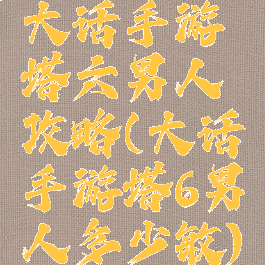 大话手游
塔六男人
攻略(大话
手游塔6男
人多少敏)